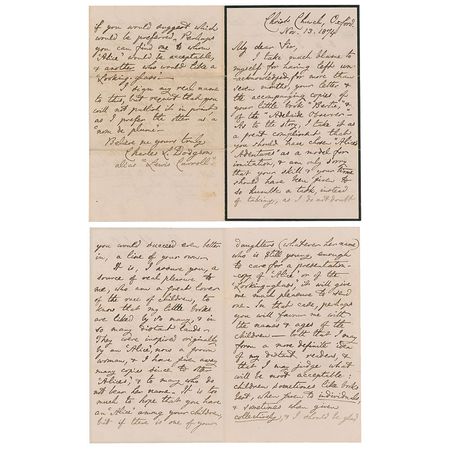 Christ Church, Oxford.
Nov. 13. 1874
My dear Sir,
I take much blame to
myself for having left un-
acknowledged, for more than
seven months, your letter &
the accompanying copies of
your little book "Bertie," &
of the "Adelaide Observer"
As to the story, I take it as
a great compliment that
you should have chosen "Alice's
Adventures" as a model for
imitation, & am only sorry
that your skill & your time
should have been given to
so humble a task, instead
of taking, as I do not doubt
you would succeed even better
in, a line of your own.
It is, I assure you, a
source of real pleasure to
me, who am a great lover
of the race of children, to
know that my little books
are liked by so many, & in
so many distant lands.
They were inspired originally
by an 'Alice,' now a grown
woman, & I have given away
many copies since to other
'Alices,' & to many who do
not bear her name. It is too
much to hope that you have
an 'Alice' among your children,
but if there is one of your
daughters (whatever her name)
who is still young enough
to care for a presentation-
copy of 'Alice' or of the
'Looking-glass' it will give
me much pleasure to send
one. In that case, perhaps
you will favour me with
the names & ages of the
children — both that I may
form a more definite idea
of my distant readers, &
that I may judge what
will be most acceptable:
children sometimes like books
best, when given to individuals,
& sometimes when given
collectively, & I should be glad
if you would suggest which
would be preferred. Perhaps
you can find one to whom
'Alice' would be acceptable,
& another who would like a
'Looking-glass.'
I sign my real name
to this, but request that you
will not publish it in print,
as I prefer the other as a
"nom de plume".
Believe me yours truly,
Charles L. Dodgson
alias "Lewis Carroll."